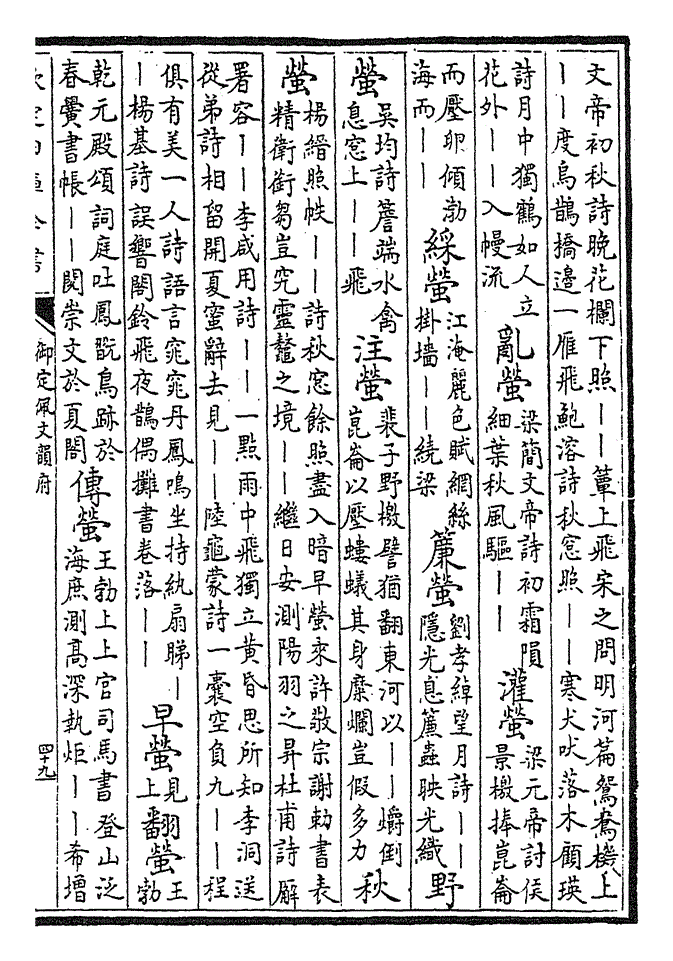 文帝初秋詩晚花欄下照——簟上飛宋之問明河篇鴛鴦機上
——度烏鵲橋邊一雁飛鮑溶詩秋窓照——寒犬吠落木顧瑛
詩月中獨鶴如人立
花外——入幔流
亂螢
梁簡文帝詩初霜隕
細葉秋風驅——
灌螢
梁元帝討侯
景檄捧崑崙
而壓卵傾渤
海而——
綵螢
江淹麗色賦網絲
掛墻——繞梁
簾螢
劉孝綽望月詩——
隱光息簾蟲映光織
野
螢
吳均詩簷端水禽
息窓上——飛
注螢
裴子野檄譬猶翻東河以——爝倒
崑崙以壓螻蟻其身糜爛豈假多力
秋
螢
楊縉照帙——詩秋窓餘照盡入暗早螢來許敬宗謝勅書表
精衛銜芻豈究靈鼇之境——繼日安測陽羽之昇杜甫詩廨
署容——李咸用詩——一點雨中飛獨立黃昏思所知李洞送
從弟詩相留開夏蜜辭去見——陸龜蒙詩一囊空負九——程
俱有美一人詩語言窕窕丹鳳鳴坐持紈扇睇—
—楊基詩誤響閣鈴飛夜鵲偶攤書卷落——
早螢
見
上
翻螢
王
勃
乾元殿頌詞庭吐鳳翫鳥跡於
春黌書帳——閱崇文於夏閣
傳螢
王勃上上官司馬書登山泛
海庶測高深執炬——希增
欽定四庫全書
御定佩文韻府
四十九